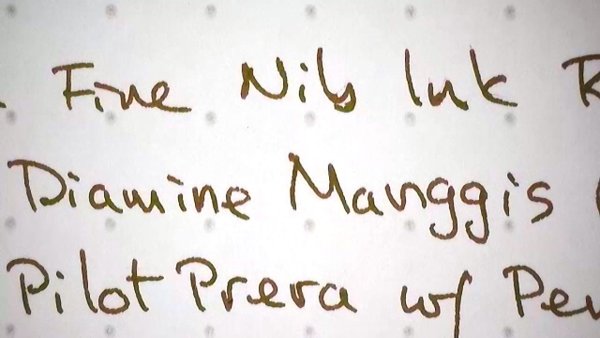 . Fine Nib Ink R
Diamine Manggis (
Pilot Prera w/ Pen